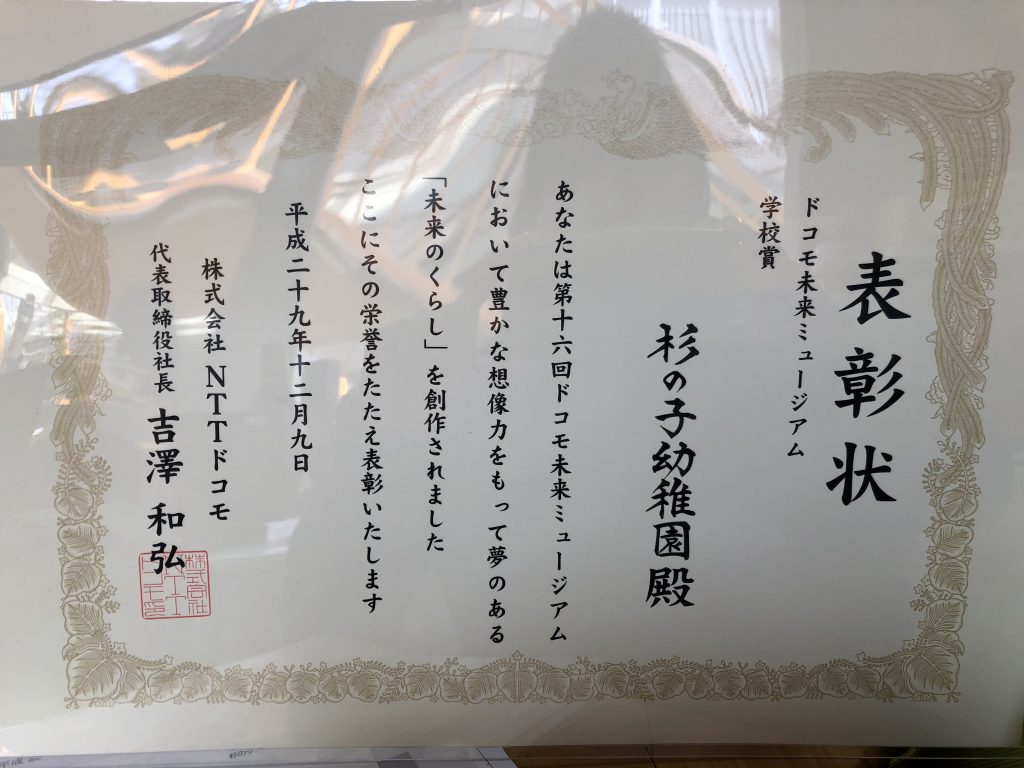 表彰状
ドコモ未来ミュージアム
学校賞
杉の子幼稚園殿
あなたは第十六回ドコモ未来ミュージアム
において豊かな想像力をもって夢のある
「未来のくらし」を創作されました
ここにその栄誉をたたえ表彰いたします
平成二十九年十二月九日
株式会社NTTドコモ
代表取締役社長 吉澤 和弘